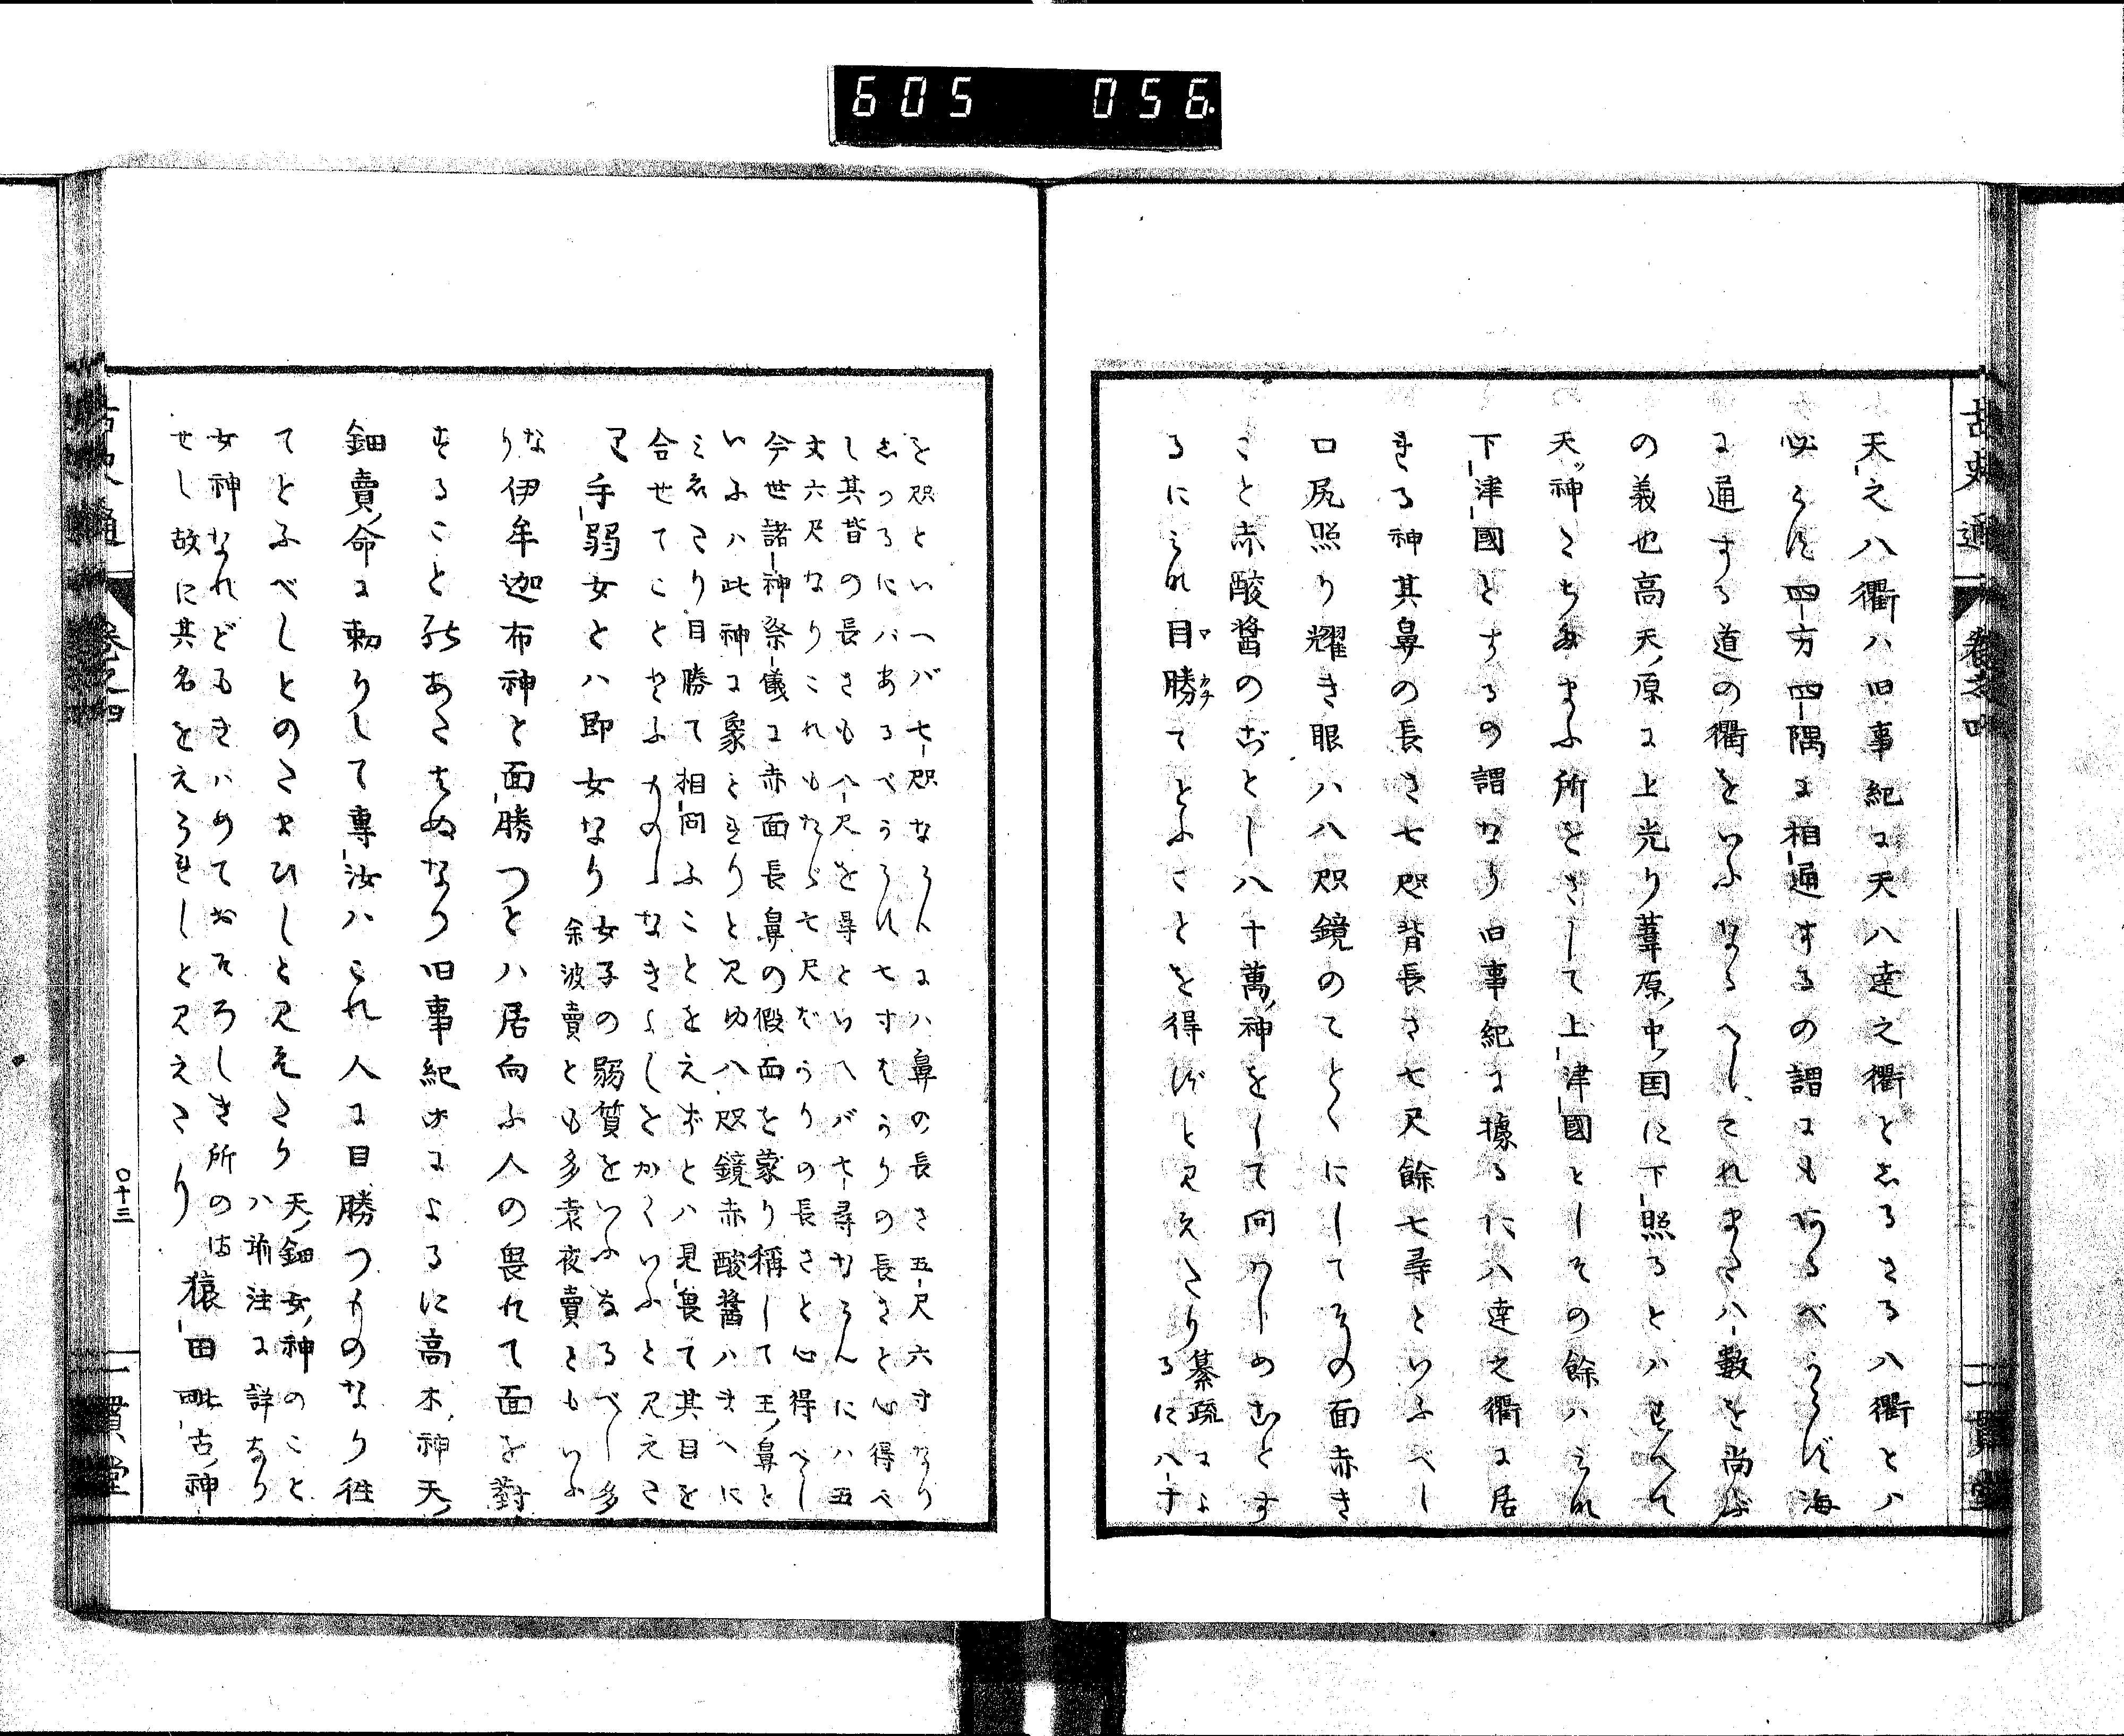 605 056
古史通 卷之四 一貫堂
天之八衢ハ旧事紀に天八達之衢としるさる八衢とハ
必らす四方四隅に相通するの謂にもあるべからず海
に通する道の衢をいふなるへしそれまさ八数を尚ぶ
の義也高天原に上光り葦原中国に下照るとハすへて
天神たちのまふ所をさして上津國としその餘ハみな
下津國とするの謂なり旧事紀に據るに八達之衢に居
ける神其鼻の長さ七咫背長さ七尺餘七尋といふべし
口尻照り耀き眼ハ八咫鏡のてとくにしてその面赤き
こと赤酸醤のごとし八十萬神をして問めしめむとす
るにみな目勝てとふことを得ずと見えたり
纂疏によ
るに八十
を咫といへバ七咫ならんにハ鼻の長さ五尺六寸なり
しかるにハあるべからず七寸ばかりの長さと心得べ
し其背の長さも八尺を尋といへバ七尋ならんにハ五
丈六尺なりこれもたゞ七尺ばかりの長さと心得べし
今世諸神祭儀に赤面長鼻の假面を蒙り稱して王鼻と
いふハ此神に象とれりと見ゆ八咫鏡赤酸醤ハまへに
みえたり目勝て相問ふことをえずとハ見畏て其目を
合せてこととふものなきをしかいふと見えた
り
手弱女とハ即女なり
女子の弱質をいふなるべし多
余波賣とも多袁夜賣ともいふ
なり
伊牟迦布神と面勝つとハ居向ふ人の畏れて面を對
することあたはぬなり旧事紀によるに高木神天
鈿賣命に勅りして專汝ハこれ人に目勝つものなり往
てとふべしとのたまひしと見えたり
天鈿女神のこと
ハ前注に詳なり
女神なれどもきハめておそろしき所の
せし故に其名をえられしと見えたり
猿田毗古神
古史通 卷之四 〇十三 一貫堂